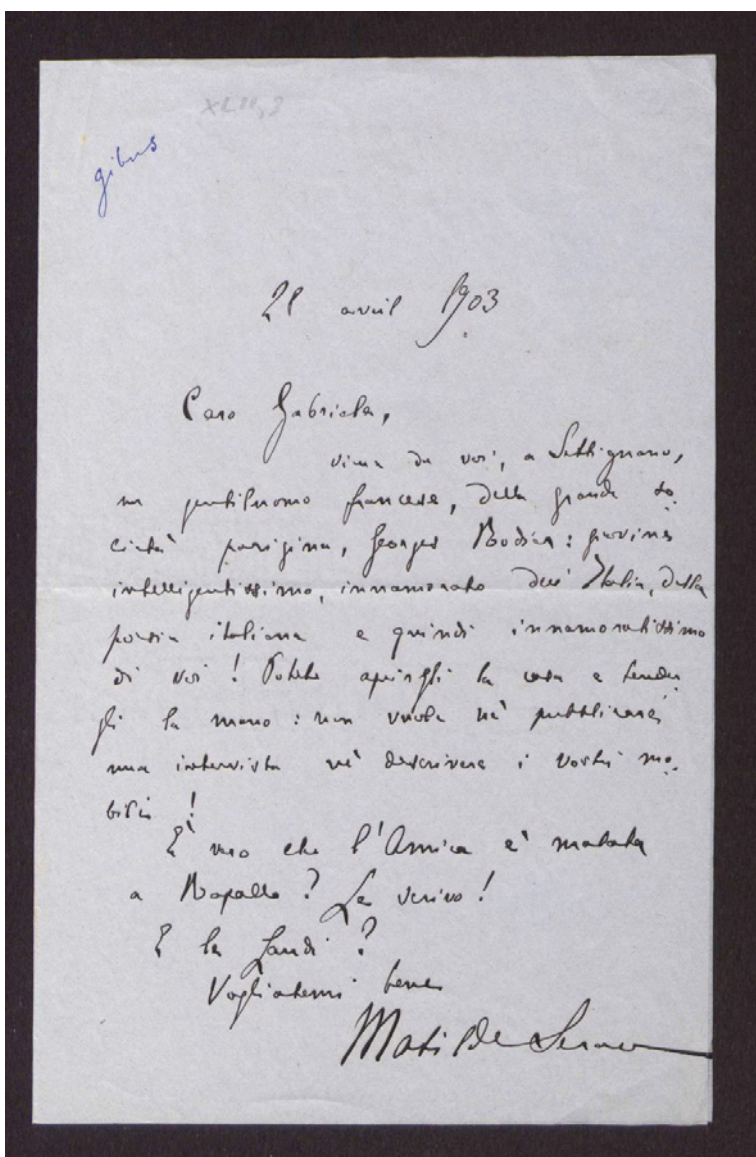 gibus
21 avril 1903
Caro Gabriele,
viene da voi, a Settignano,
un gentiluomo francese, della grande so
cietà parigina, Georges Rodier: giovine
intelligentissimo, innamorato dell'Italia, della
poesia italiana e quindi innamoratissimo
di voi! Potete aprirgli la casa e tender
gli la mano: non vuole nè pubblicare
una intervista nè descrivere i vostri mo
bili!
È vero che l'Amica è malata
a Rapallo? Le scrivo!
E la
Vogliatemi bene
Matilde Serao